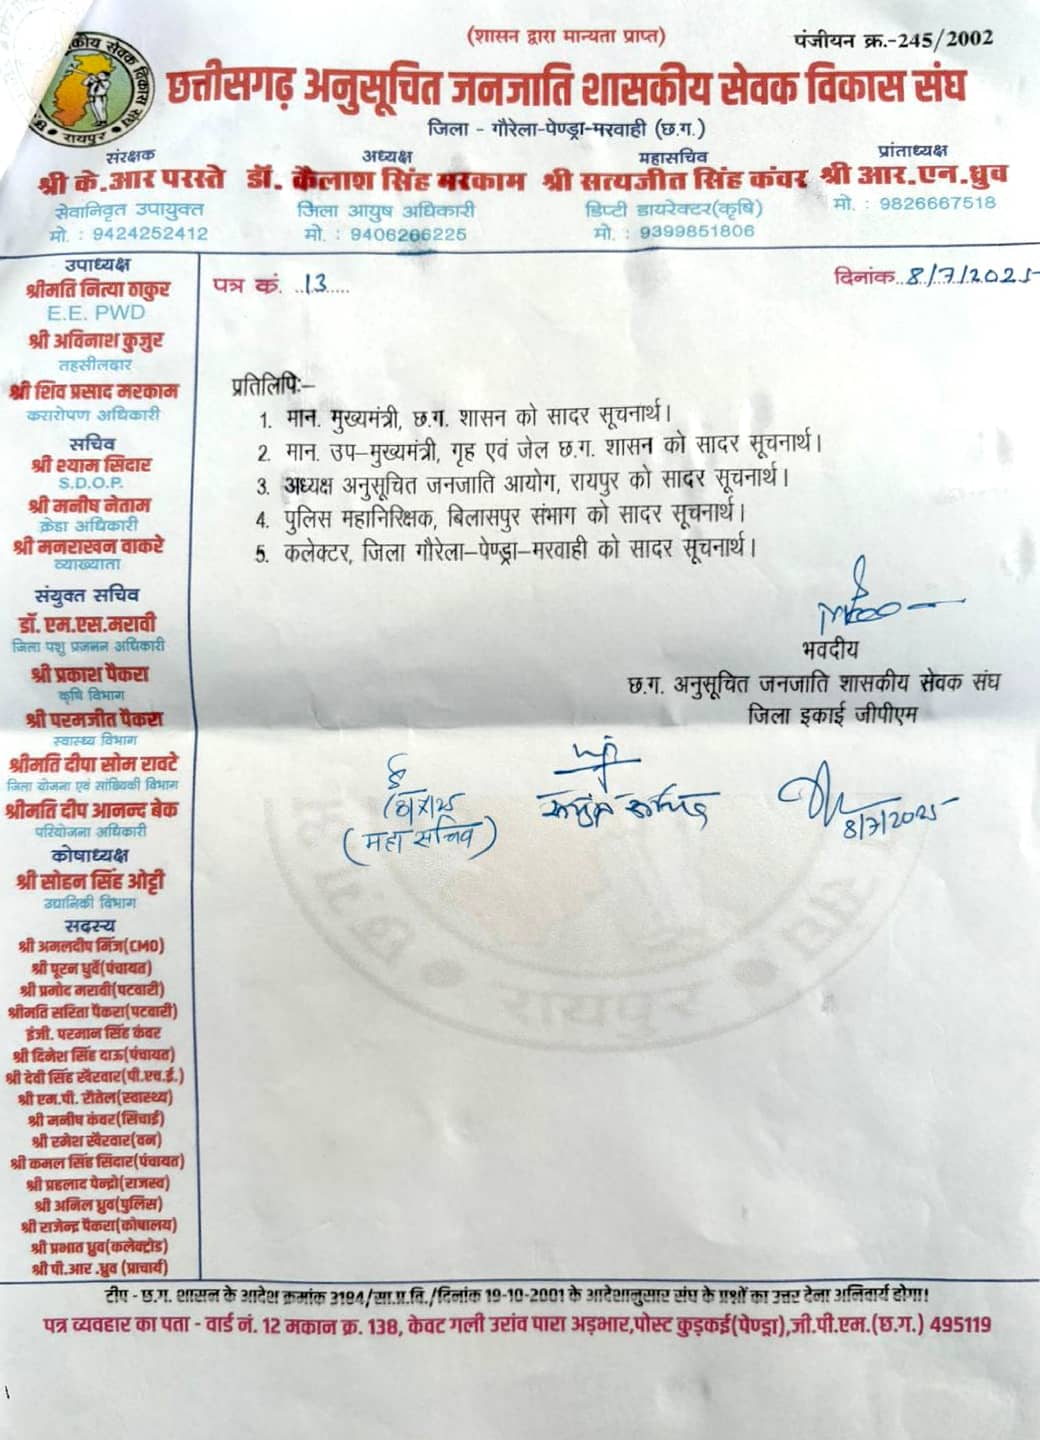 (शासन द्वारा मान्यता प्राप्त)
पंजीयन क्र.-245/2002
छत्तीसगढ़ अनुसूचित जनजाति शासकीय सेवक विकास संघ
रायपुर
जिला - गौरेला-पेण्ड्रा-मरवाही (छ.ग.)
संरक्षक
श्री के.आर परस्ते
सेवानिवृत उपायुक्त
मो. : 9424252412
अध्यक्ष
डॉ. कैलाश सिंह मरकाम
जिला आयुष अधिकारी
मो. : 9406266225
महासचिव
श्री सत्यजीत सिंह कंवर
डिप्टी डायरेक्टर(कृषि)
मो. : 9399851806
प्रांताध्यक्ष
श्री आर.एन.ध्रुव
मो. : 9826667518
उपाध्यक्ष
श्रीमति नित्या ठाकुर
E.E. PWD
श्री अविनाश कुजुर
तहसीलदार
श्री शिव प्रसाद मरकाम
करारोपण अधिकारी
सचिव
श्री श्याम सिदार
S.D.O.P.
श्री मनीष नेताम
क्रेडा अधिकारी
श्री मनराखन वाकरे
व्याख्याता
संयुक्त सचिव
डॉ. एम.एस.मरावी
जिला पशु प्रजनन अधिकारी
श्री प्रकाश पैकरा
कृषि विभाग
श्री परमजीत पैकरा
स्वास्थ्य विभाग
श्रीमति दीपा सोम रावटे
जिला योजना एवं सांख्यिकी विभाग
श्रीमति दीप आनन्द बेक
परियोजना अधिकारी
कोषाध्यक्ष
श्री सोहन सिंह ओट्टी
उद्यानिकी विभाग
सदस्य
श्री अमलदीप मिंज(CMO)
श्री पूरन धुर्वे(पंचायत)
श्री प्रमोद मरावी(पटवारी)
श्रीमति सरिता पैकरा(पटवारी)
इंजी. परमान सिंह कंवर
श्री दिनेश सिंह दाऊ(पंचायत)
श्री देवी सिंह खैरवार(पी.एच.ई.)
श्री एम.पी. रौतेल(स्वास्थ्य)
श्री मनीष कंवर(सिंचाई)
श्री रमेश खैरवार(वन)
श्री कमल सिंह सिदार(पंचायत)
श्री प्रहलाद पेन्द्रो(राजस्व)
श्री अनिल ध्रुव(पुलिस)
श्री राजेन्द्र पैकरा(कोषालय)
श्री प्रभात ध्रुव(कलेक्ट्रोड)
श्री पी.आर .ध्रुव (प्राचार्य)
पत्र कं. ..13.....
दिनांक..8/7/2025
प्रतिलिपिः–
1. मान. मुख्यमंत्री, छ.ग. शासन को सादर सूचनार्थ।
2. मान. उप–मुख्यमंत्री, गृह एवं जेल छ.ग. शासन को सादर सूचनार्थ।
3. अध्यक्ष अनुसूचित जनजाति आयोग, रायपुर को सादर सूचनार्थ।
4. पुलिस महानिरिक्षक, बिलासपुर संभाग को सादर सूचनार्थ।
5. कलेक्टर, जिला गौरेला–पेण्ड्रा–मरवाही को सादर सूचनार्थ।
भवदीय
छ.ग. अनुसूचित जनजाति शासकीय सेवक संघ
जिला इकाई जीपीएम
(महा सचिव)
8/7/2025
रायपुर
टीप - छ.ग. शासन के आदेश क्रमांक 3194/सा.प्र.वि./दिनांक 19-10-2001 के आदेशानुसार संघ के प्रश्नों का उत्तर देना अनिवार्य होगा!
पत्र व्यवहार का पता - वार्ड नं. 12 मकान क्र. 138, केवट गली उरांव पारा अड़भार,पोस्ट कुड़कई(पेण्ड्रा),जी.पी.एम.(छ.ग.) 495119